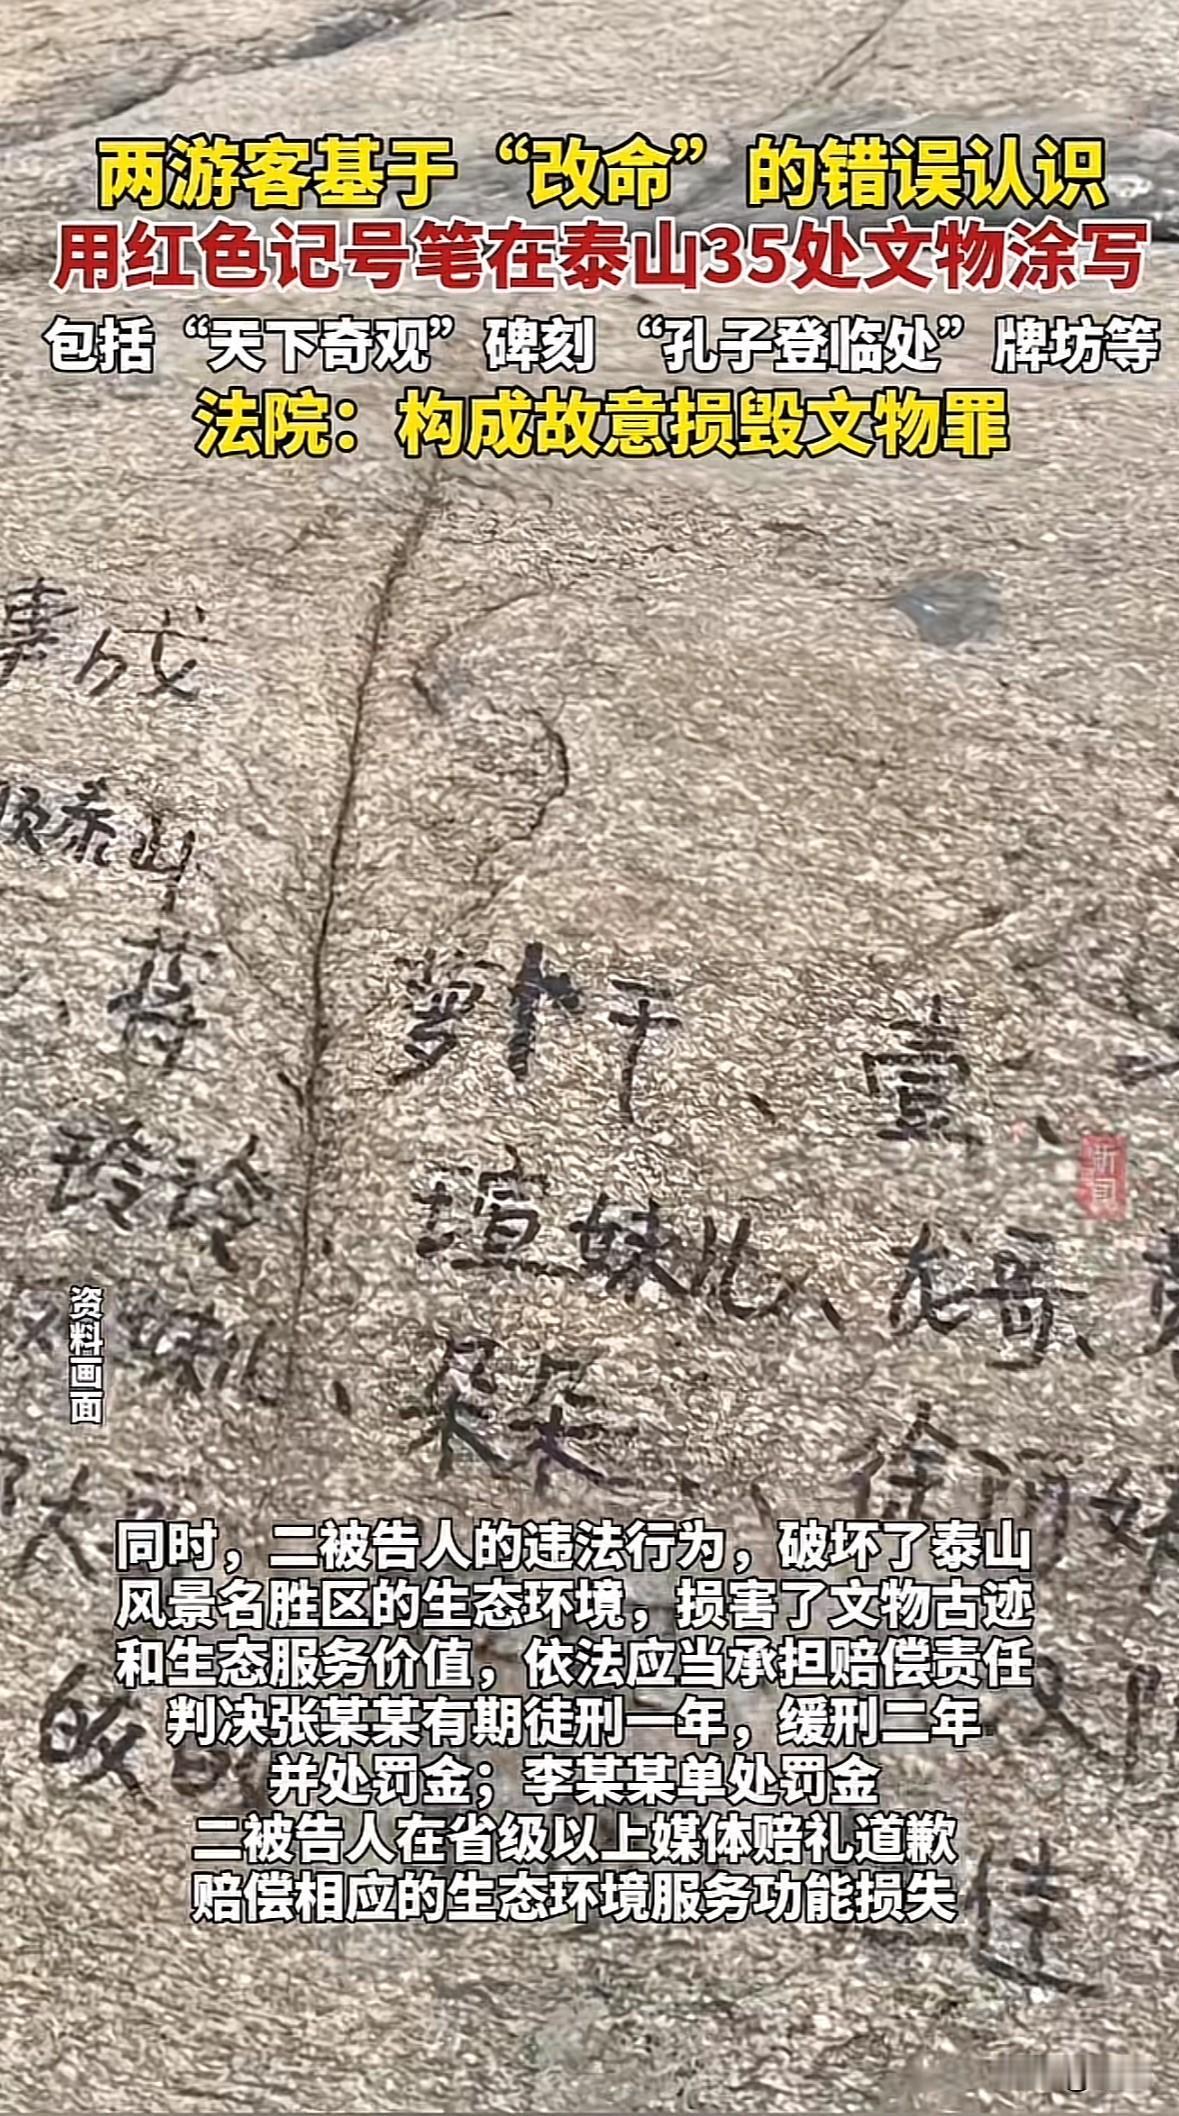 两游客基于“改命”的错误认识
用红色记号笔在泰山35处文物涂写
包括“天下奇观”碑刻 “孔子登临处”牌坊等
法院：构成故意损毁文物罪
成
泰山
萝卜干
壹、
玲玲
瑄妹儿、龙哥、
新闻
资料画面
朵朵
徐
大
同时，二被告人的违法行为，破坏了泰山
风景名胜区的生态环境，损害了文物古迹
和生态服务价值，依法应当承担赔偿责任
判决张某某有期徒刑一年，缓刑二年
并处罚金；李某某单处罚金
二被告人在省级以上媒体赔礼道歉
赔偿相应的生态环境服务功能损失
佳